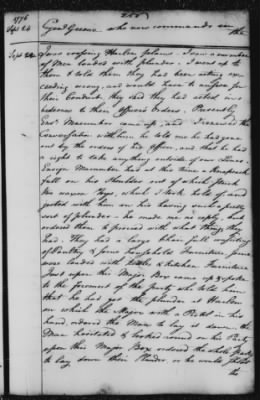 1776
Sept 24
Genl Greene who now commands in
the
Sept 24
I was crossing Harlem plains I saw a number
of Men loaded with plunder I went up to
them & told them they had been acting
wrong, and would have to answer for
their Conduct, they said they had acted in o-
bedience to their Officers Orders. Presently
Ensn Macumber came up, and I renewed the
Conversation with him he told me he had gone
out by the orders of his Officer, and that he had
a right to take anything outside of our Lines.
Ensign Macumber had at the time a Knapsack
on his Shoulder out of which Stuck
of which I took hold of and
jested with him on his having such a pretty
sort of plunder he made me no reply but
ordered them to proceed with what things they
had. They had a large Chair full consisting
of Poultry & some household Furniture some
were loaded with kitchen Furniture
Just upon this Major Box came up & spoke
to the foremost of the party who told him
that he had got the plunder at Harlem
on which the Major with a Pistol in his
hand, ordered the Man to lay it down, the
Man hesitated & looked round on his Party
upon this Major Box ordered the whole party
to lay down their Plunder, or he would
the